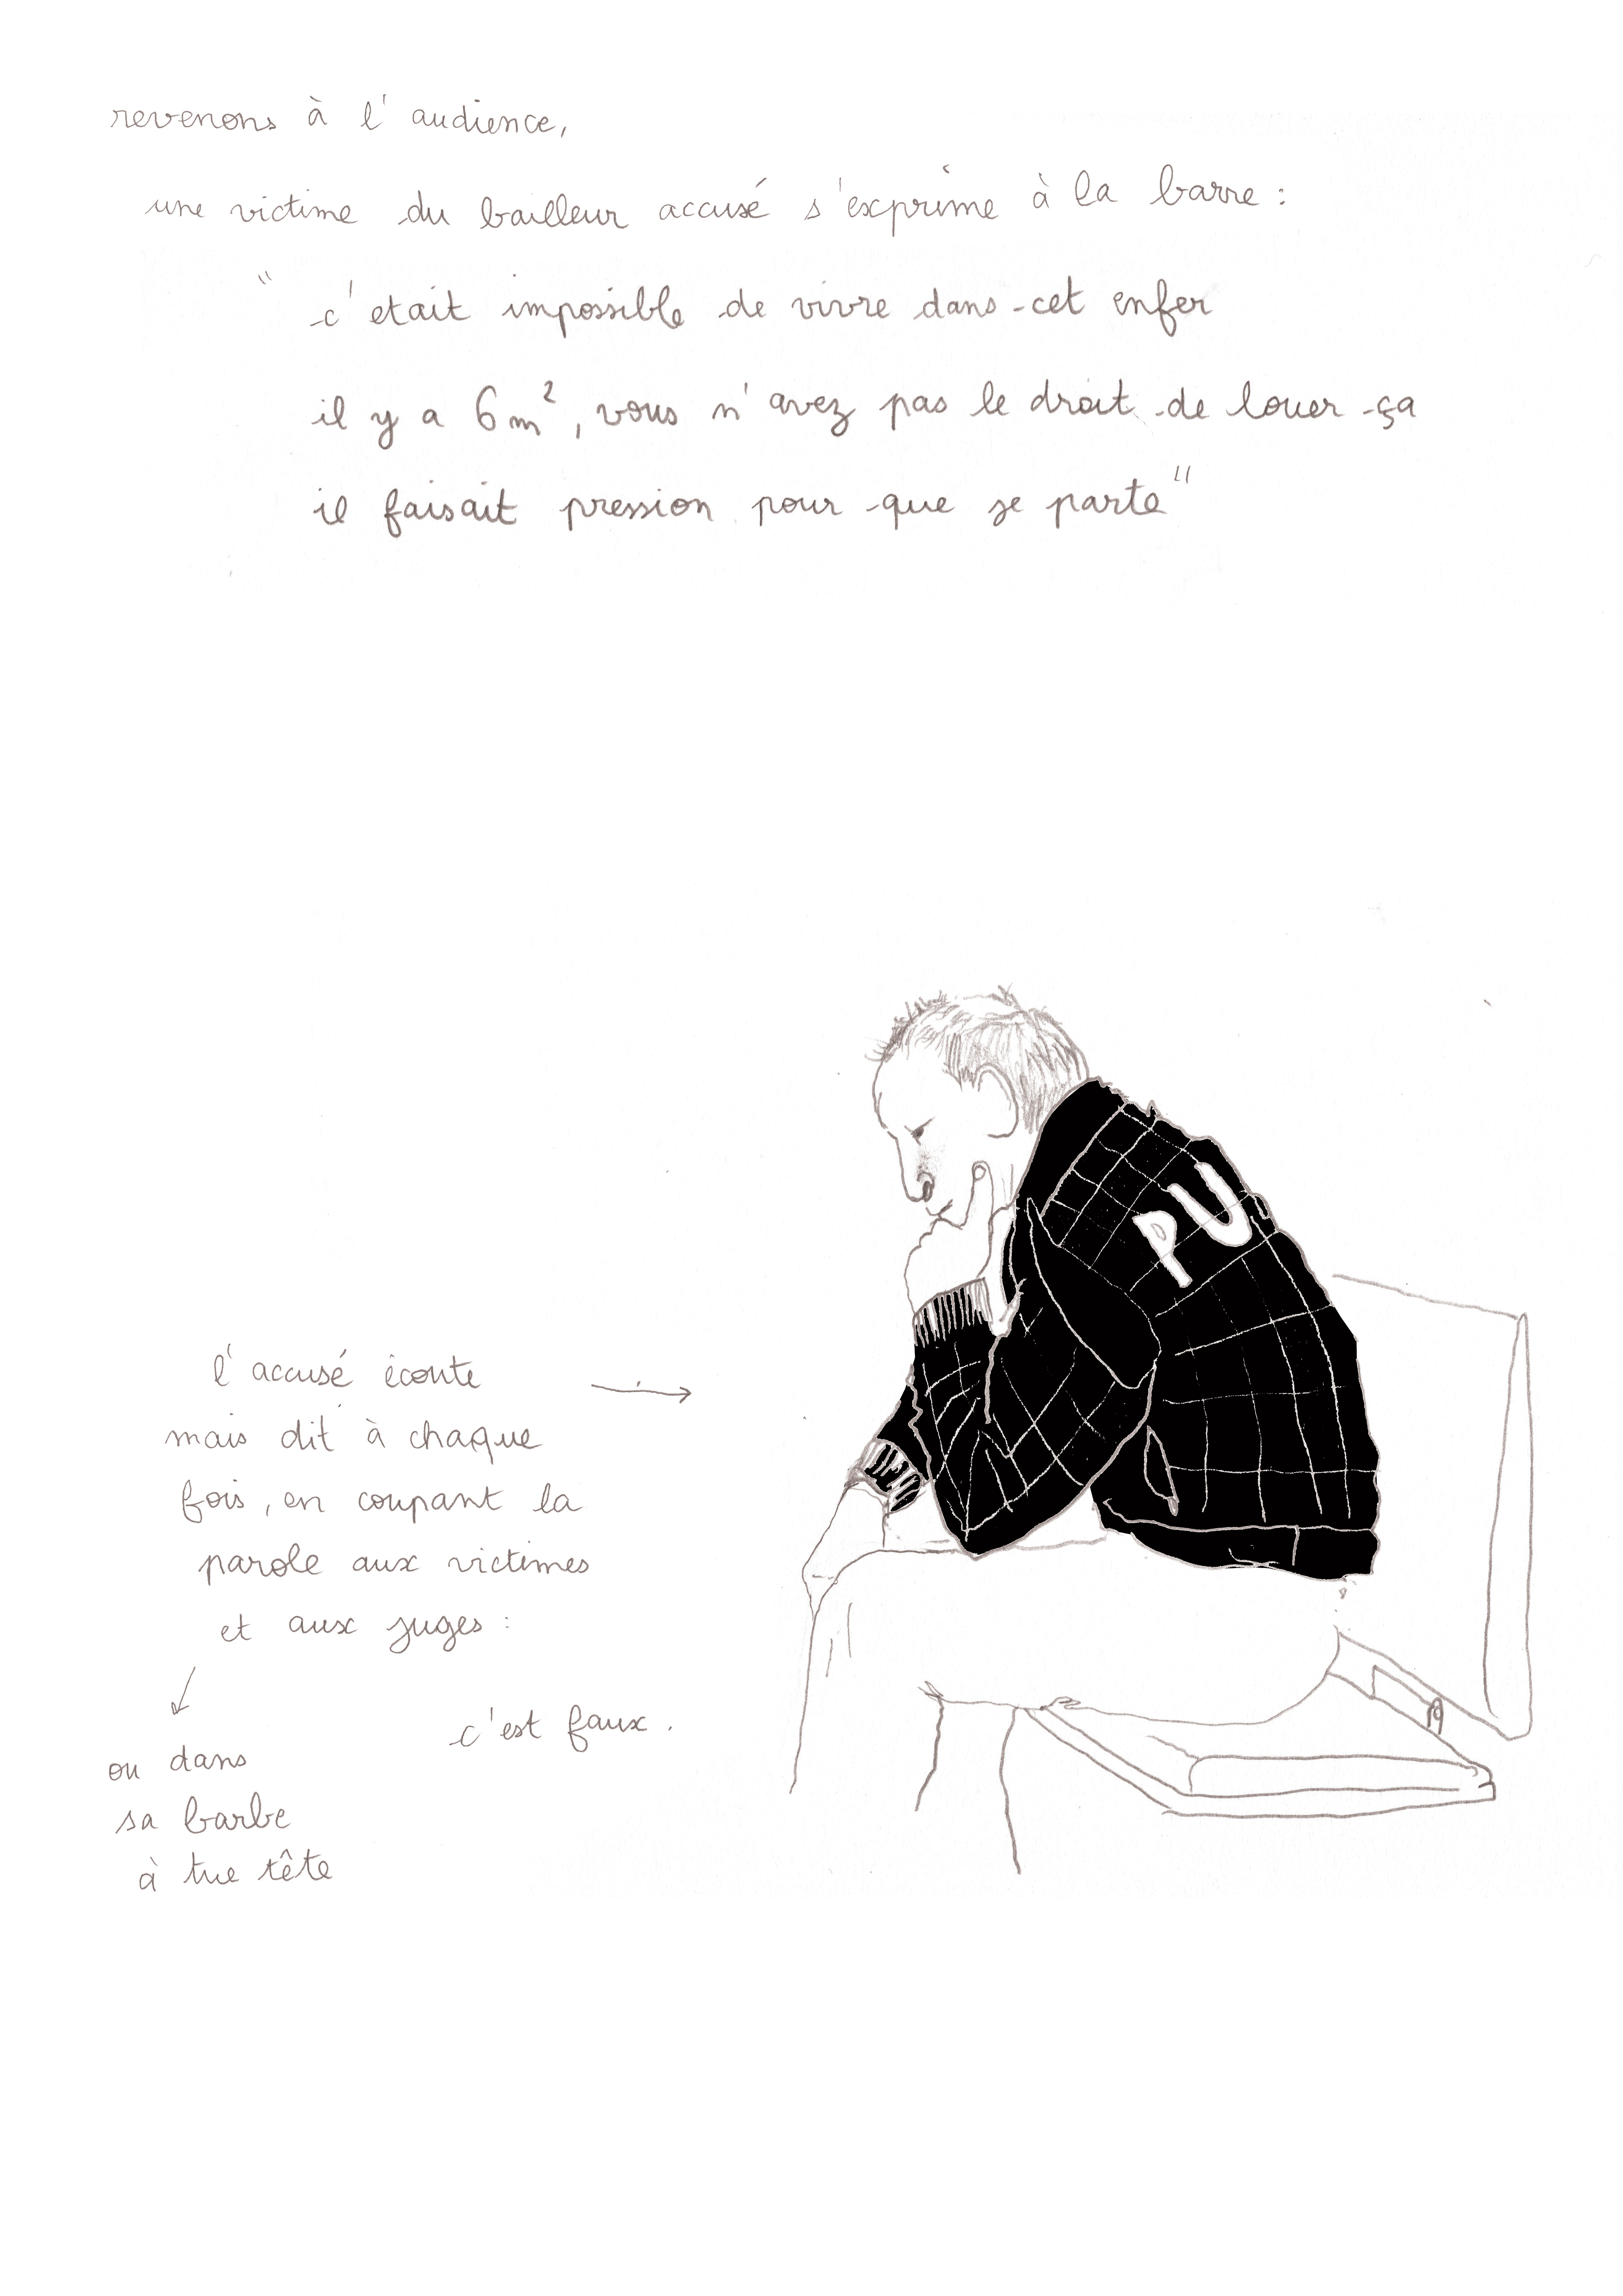 revenons à l'audience,
une victime du bailleur accusé s'exprime à la barre :
" c'etait impossible de vivre dans cet enfer
il y a 6 m², vous n'avez pas le droit de louer ça
il faisait pression pour que je parte "
PU
l'accusé écoute →
mais dit à chaque
fois, en coupant la
parole aux victimes
et aux juges :
c'est faux.
ou dans
sa barbe
à tue tête